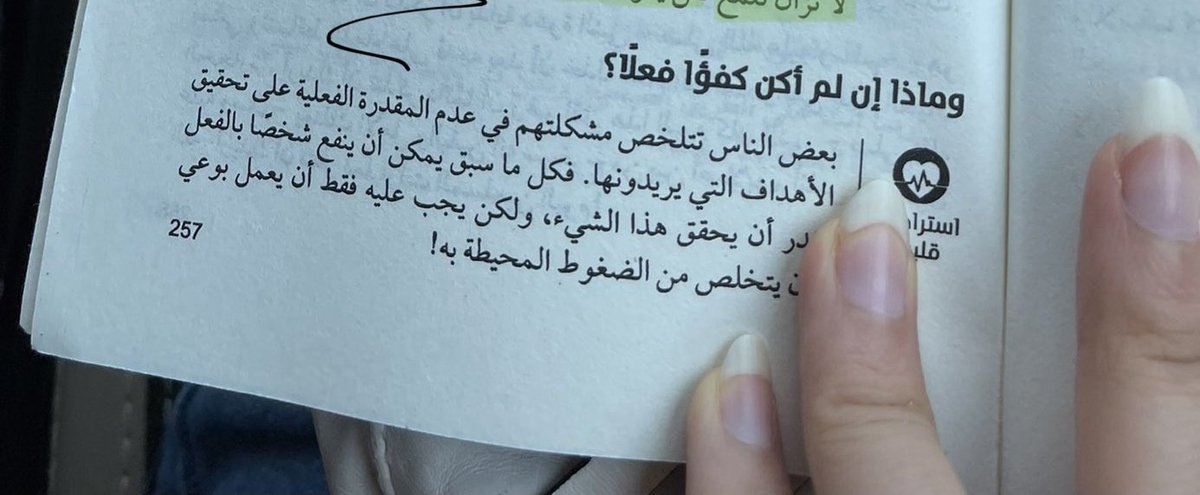 وماذا إن لم أكن كفؤًا فعلًا؟
بعض الناس تتلخص مشكلتهم في عدم المقدرة الفعلية على تحقيق
الأهداف التي يريدونها. فكل ما سبق يمكن أن ينفع شخصًا بالفعل
أن يحقق هذا الشيء، ولكن يجب عليه فقط أن يعمل بوعي
يتخلص من الضغوط المحيطة به!
257